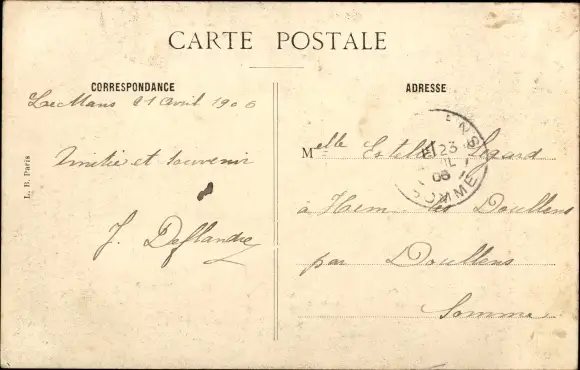 CARTE POSTALE
CORRESPONDANCE
Le Mans 21 Avril 1906
Amitié et Souvenir
J. Deflandre
L. B. Paris
ADRESSE
Melle Estelle Sigard
à Hem les Doullens
par Doullens
Somme
ENS
23
IL
06
SOMME